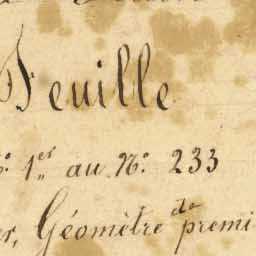 Feuille
N.º 1.er au N.º 233
er, Géomètre de premi